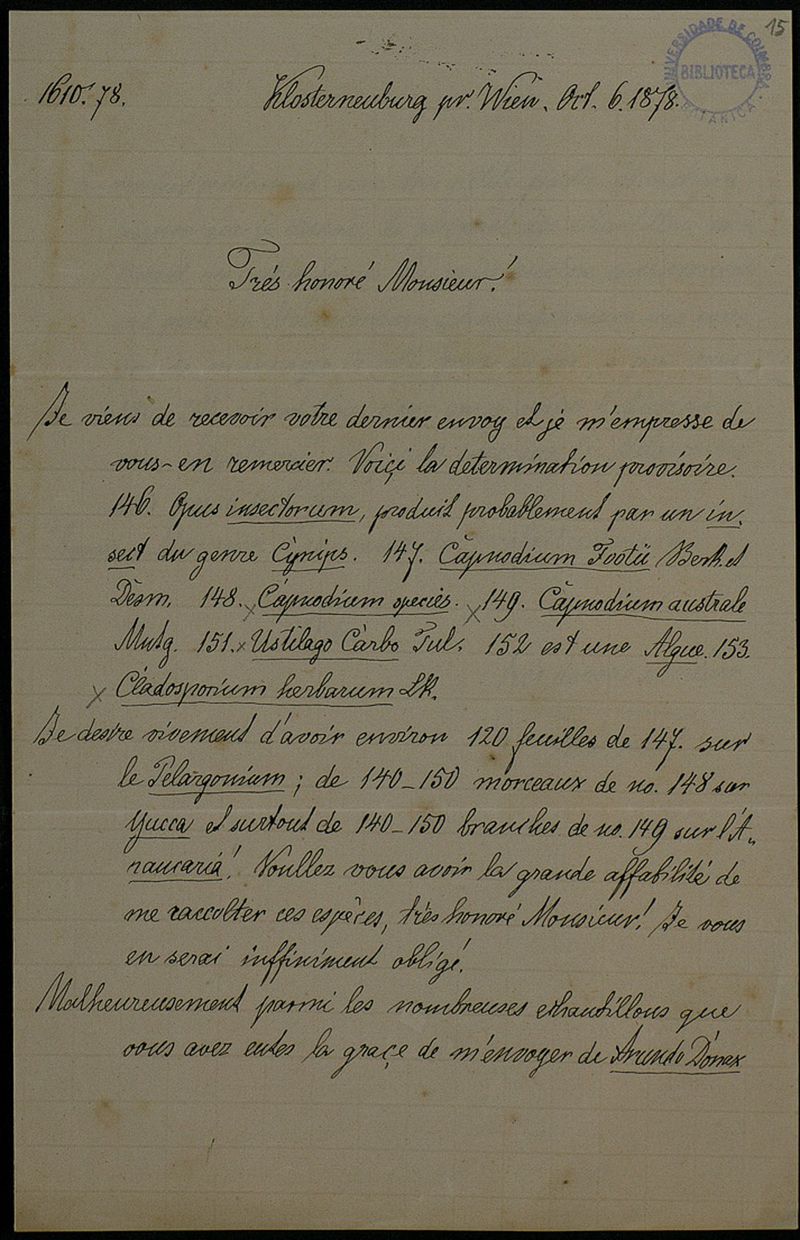 15
UNIVERSIDADE DE COIMBRA
BIBLIOTECA
BOTANICA
1610.'78.
Klosterneuburg pr. Wien. Oct. 6. 1878.
Trés honoré Monsieur!
Je viens de recevoir votre dernier envoy et je m'empresse de
vous en remercier. Voiçi la determination provisoire.
146. Opus insectorum, produit probablement par un in-
sect du genre Cynips. 147. Capnodium Footii Berk et
Desm. 148. Capnodium species. 149. Capnodium australe
Mntg. 151. Ustilago Carbo Tul. 152 est une Algue. 153.
Cladosporium herbarum Lk.
Je desire vivement d'avoir environ 120 feuilles de 147. sur
le Pelargonium; de 140-150 morceaux de no. 148 sur
Yucca et surtout de 140-150 branches de no. 149 sur l'A-
raucaria! Voullez vous avoir la grande affabilité de
me raccolter ces espèces, très honoré Monsieur! Je vous
en serai inffiniment obligé.
Malheureusement parmi les nombreuses echantillons que
vous avez eutes la graçe de m'envoyer de Arundo Donax